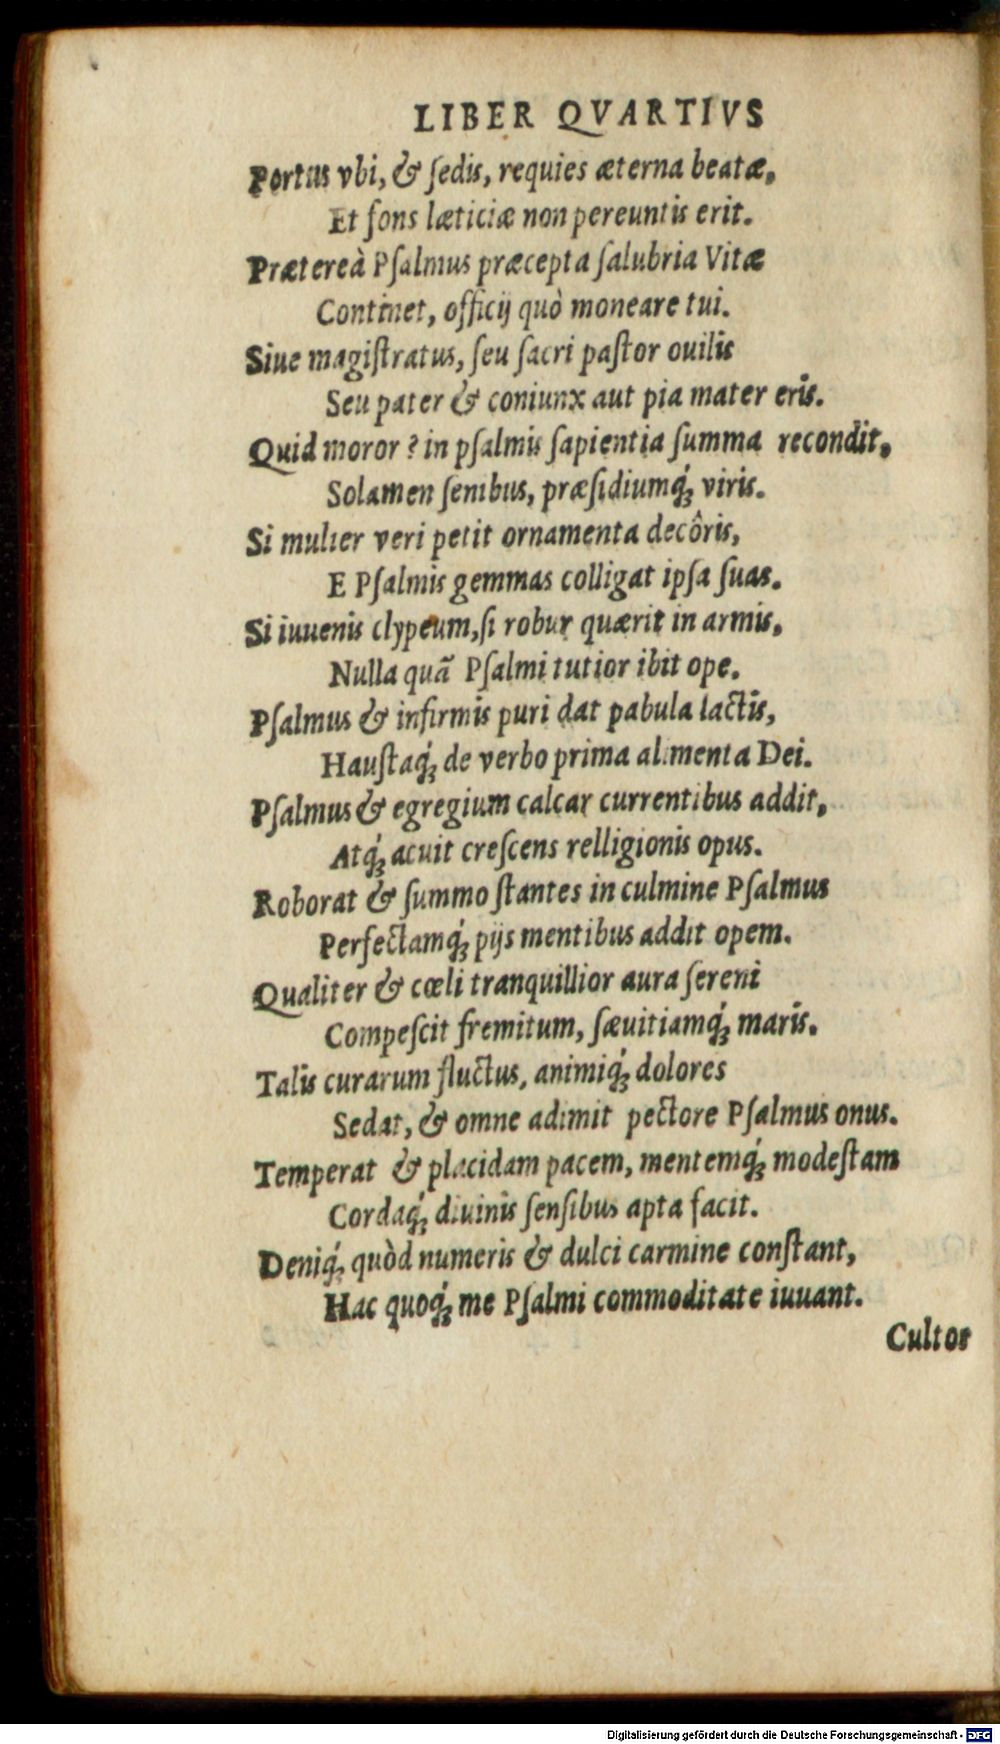 LIBER QVARTIVS
Portus vbi, & ſedis, requies æterna beatæ,
Et fons læticiæ non pereuntis erit.
Prætereà Pſalmus præcepta ſalubria Vitæ
Continet, officij quò moneare tui.
Siue magiſtratus, ſeu ſacri paſtor ouilis
Seu pater & coniunx aut pia mater eris.
Quid moror? in pſalmis ſapientia ſumma recondit,
Solamen ſenibus, præſidiumq́ꝫ viris.
Si mulier veri petit ornamenta decôris,
E Pſalmis gemmas colligat ipſa ſuas.
Si iuuenis clypeum, ſi robur quærit in armis,
Nulla quã Pſalmi tutior ibit ope.
Pſalmus & infirmis puri dat pabula lactis,
Hauſtaq́ꝫ de verbo prima alimenta Dei.
Pſalmus & egregium calcar currentibus addit,
Atq́ꝫ acuit creſcens relligionis opus.
Roborat & ſummo ſtantes in culmine Pſalmus
Perfectamq́ꝫ pijs mentibus addit opem.
Qualiter & cœli tranquillior aura ſereni
Compeſcit fremitum, ſæuitiamq́ꝫ maris.
Talis curarum fluctus, animiq́ꝫ dolores
Sedat, & omne adimit pectore Pſalmus onus.
Temperat & placidam pacem, mentemq́ꝫ modeſtam
Cordaq́ꝫ diuinis ſenſibus apta facit.
Deniq́ꝫ quòd numeris & dulci carmine conſtant,
Hac quoq́ꝫ me Pſalmi commoditate iuuant.
Cultor
Digitalisierung gefördert durch die Deutsche Forschungsgemeinschaft - DFG